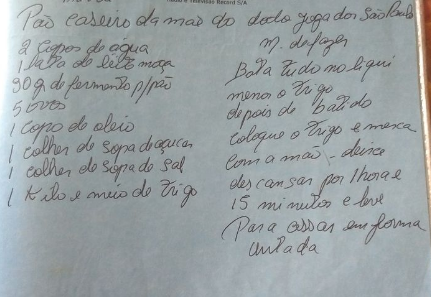 Rádio e Televisão Record S/A
Pão caseiro da mão do dedo jogador São Paulo
2 copos de água
1 lata de leite moça
90g de fermento p/pão
5 ovos
1 copo de oleio
1 colher de sopa de açucar
1 colher de sopa de sal
1 kilo e meio de trigo
m. de fazer
Bata tudo no liqui
menos o trigo
depois de batido
coloque o trigo e mexa
com a mão - deixe
descansar por 1hora e
15 minutos e leve
Para assar em forma
untada